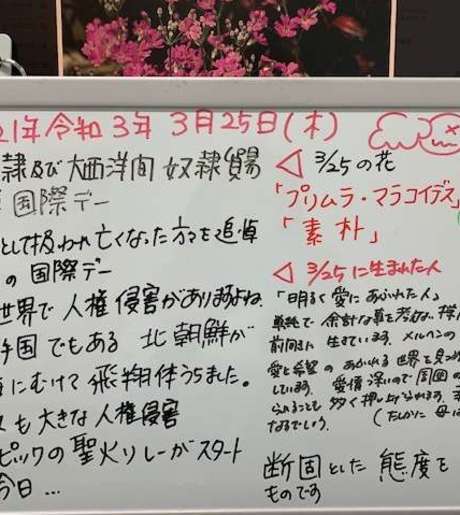 21年 令和3年 3月25日(木)
隷及び大西洋間 奴隷貿易
国際デー
として扱われ亡くなった方々を追悼
の 国際デー
世界で 人権侵害がありますよね.
国でもある 北朝鮮が
にむけて 飛翔体うちました。
も大きな人権侵害
ピックの聖火リレーがスタート
今日...
◁ 3/25の花
「プリムラ・マラコイデス
「素朴」
◁ 3/25に生まれた人
「明るく愛にあふれた人」
単純で 余計な事を考えない
前向きに 生きています. メルヘンの
愛と希望の あふれる世界を見つ
しています. 愛情深いので周囲の
られることも 多く押し上げられる
なるでしょう. (たしかに 母は
断固とした 態度を
ものです